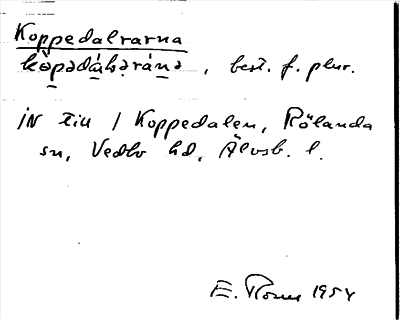 Koppedalrarna
köpədáḷəránə, best. f. plur.
IN till / Koppedalen, Rölanda
sn, Vedbo hd, Älvsb. l.
E. Rosen 1954